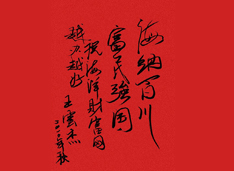 海纳百川
富民强国
祝海洋财富网
越办越好
王云杰
二〇一二年秋